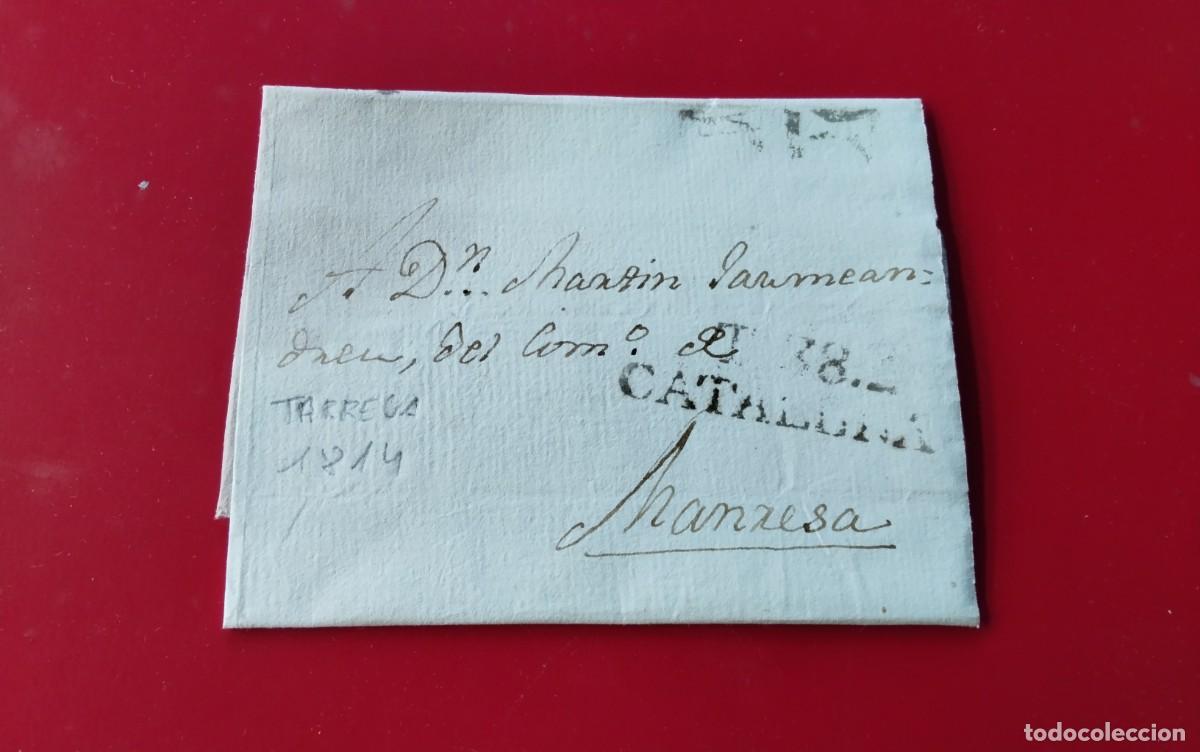 A Dn. Martin Jaumean=
dreu, del Com.o de
CATALUÑA
TARREGA
1814
Manresa
todocoleccion